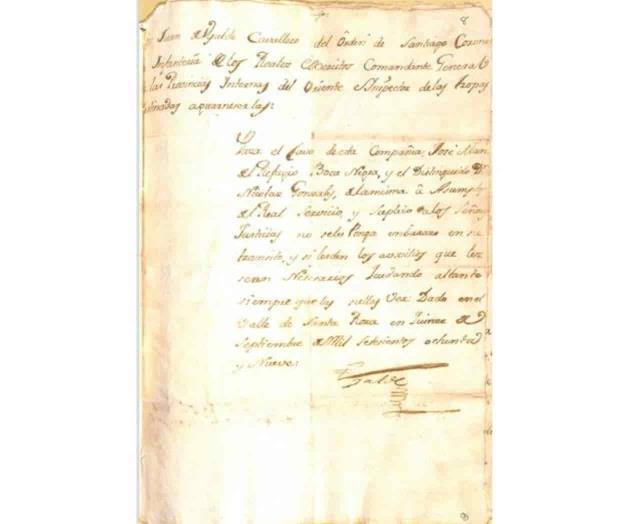 8
Juan de Ugalde Cavallero del Orden de Santiago Coronel
Infanteria de los Reales Exercitos Comandante General
las Provincias Internas del Oriente Inspector de las tropas
Pasa el Cavo de esta Compañia, José Man
del Refugio Boca Negra, y el Distinguido Dn
Nicolas Gonsales, de la misma à Asumptos
del Real Servicio, y Suplico a los Señores
Justicias no se les Ponga embaraso en su
transito, y si les den los auxilios que les
sean Nesesarios
siempre que las Dada en el
Valle de Santa Rosa en Quince de
Septiembre de Mil Setesientos ochenta
y Nueve:
Ugalde